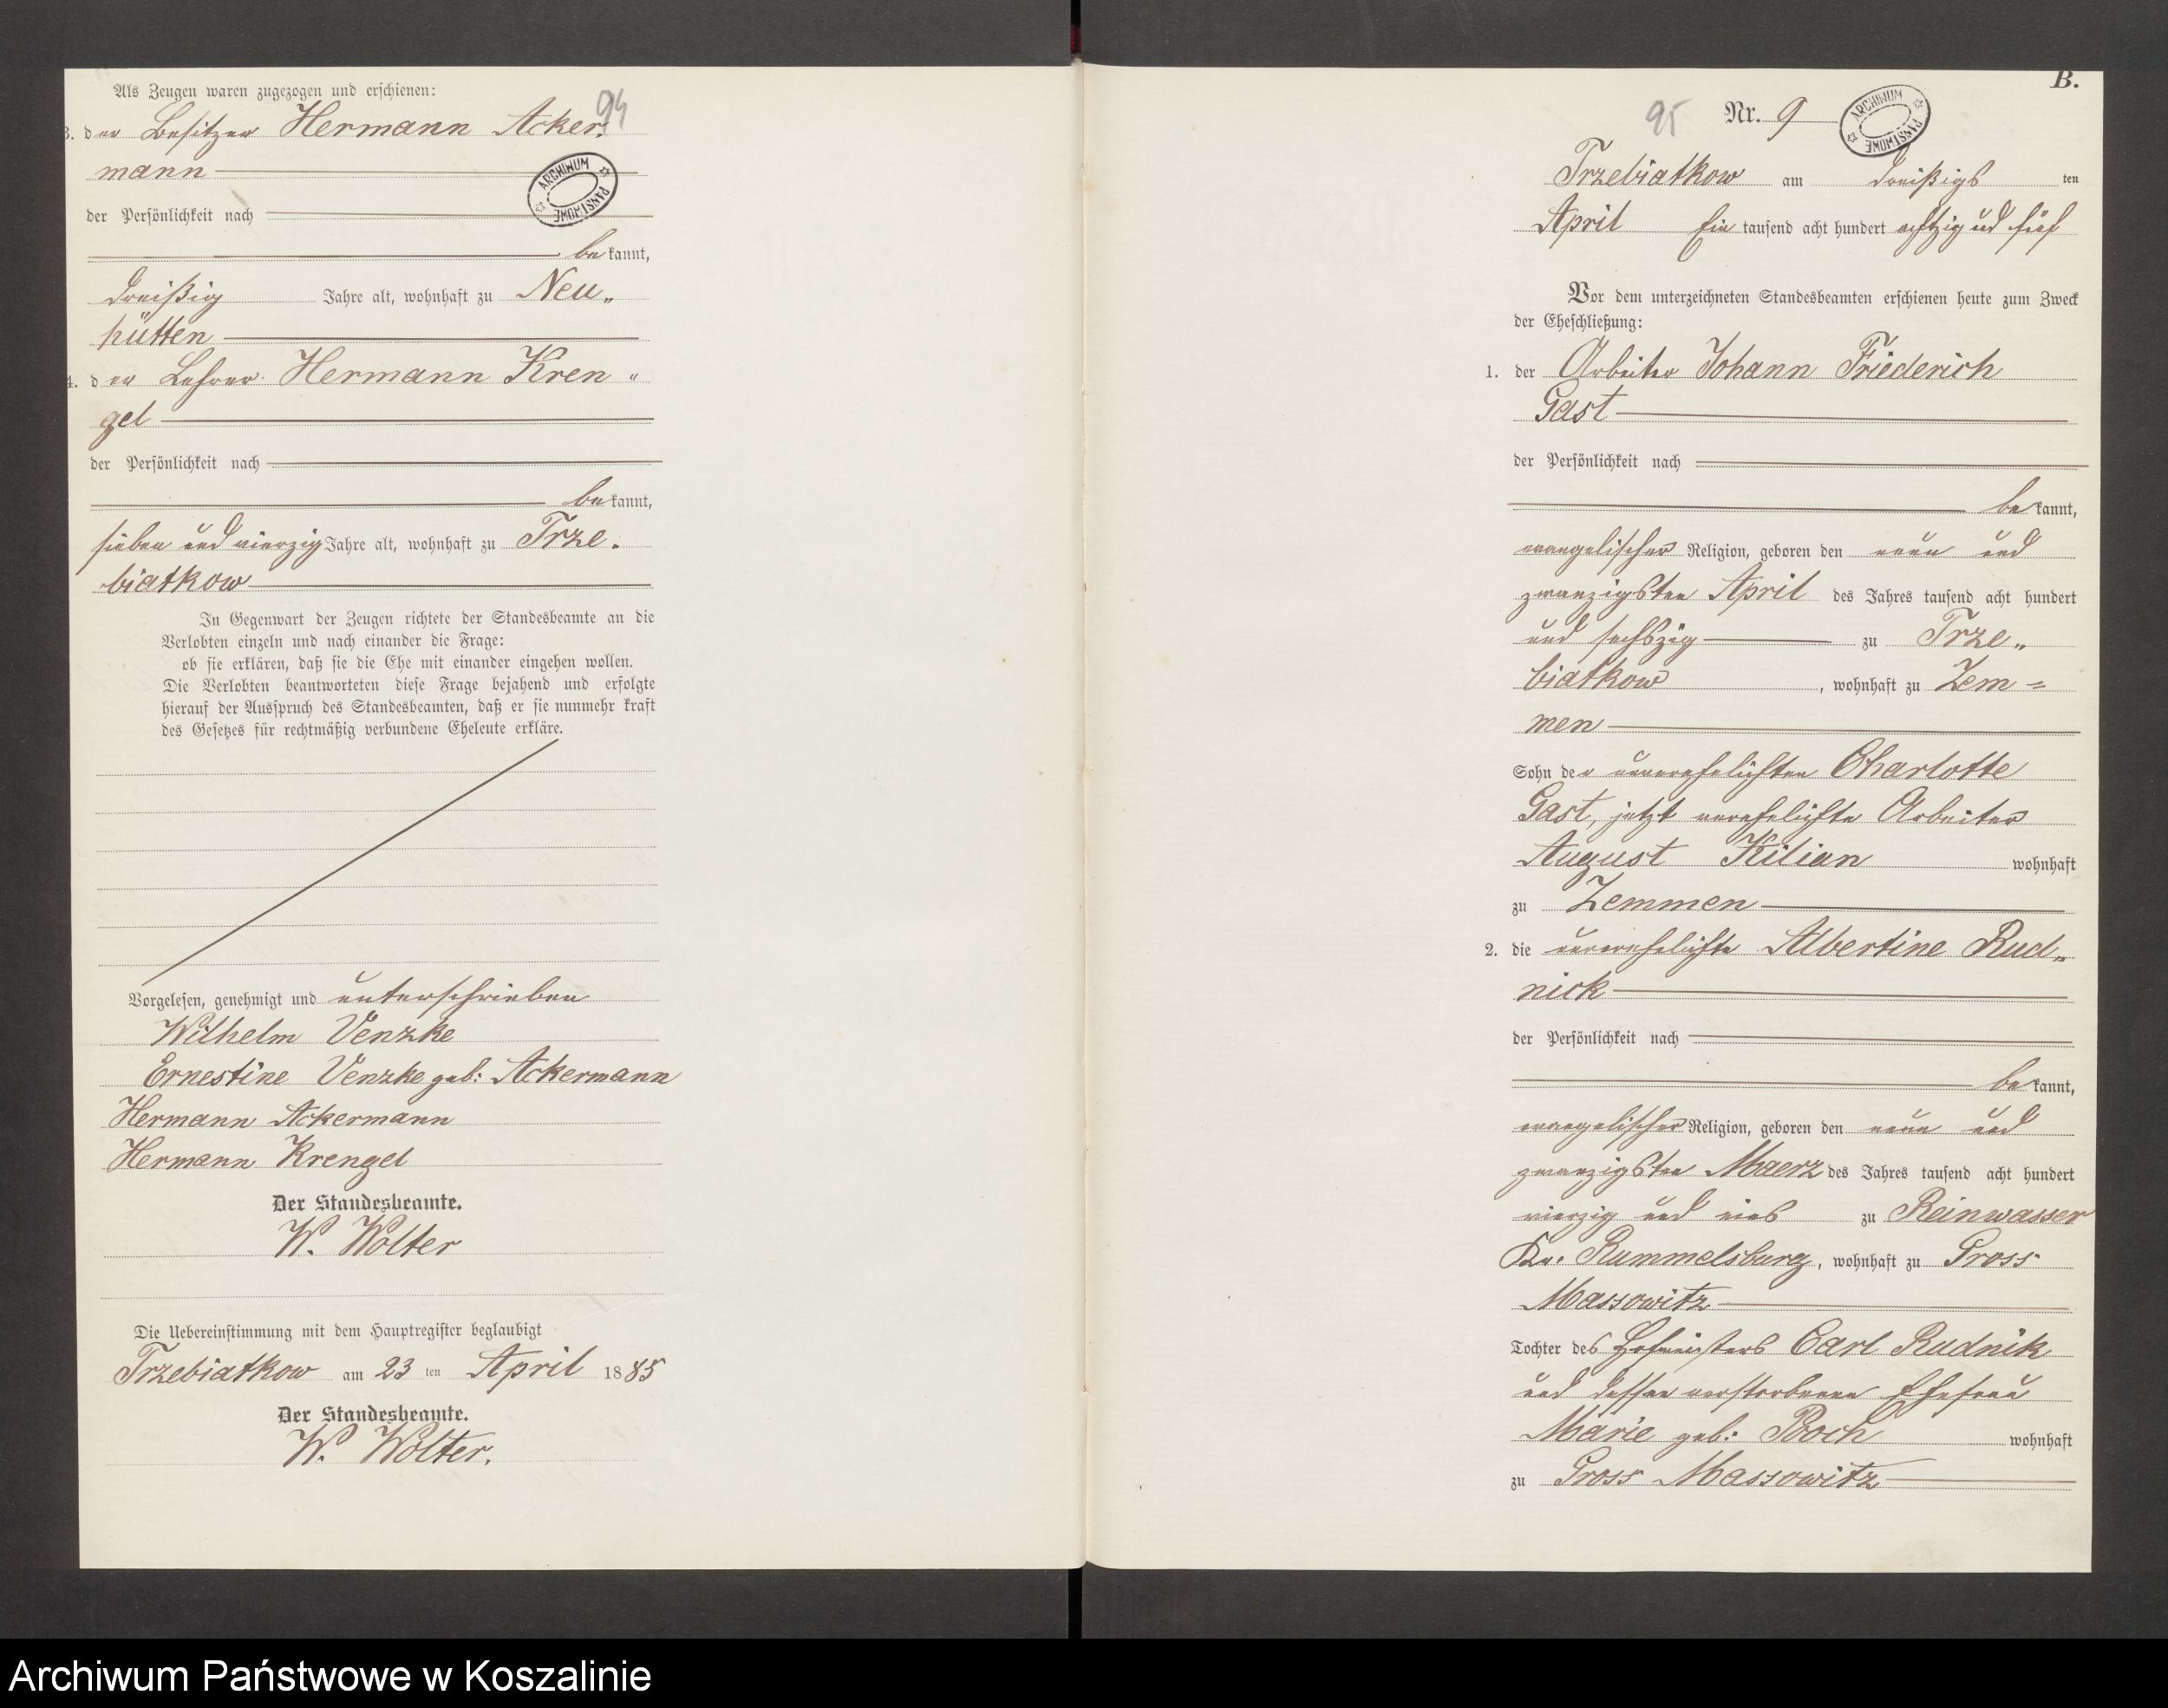 Als Zeugen waren zugezogen und erschienen:
94
3. der Besitzer Hermann Acker.
mann
ARCHIWUM PAŃSTWOWE
der Persönlichkeit nach
bekannt,
dreißig Jahre alt, wohnhaft zu Neu„
hütten
4. der Lehrer Hermann Kren„
gel
der Persönlichkeit nach
bekannt,
sieben und vierzig Jahre alt, wohnhaft zu Trze.
biatkow
In Gegenwart der Zeugen richtete der Standesbeamte an die
Verlobten einzeln und nach einander die Frage:
ob sie erklären, daß sie die Ehe mit einander eingehen wollen.
Die Verlobten beantworteten diese Frage bejahend und erfolgte
hierauf der Ausspruch des Standesbeamten, daß er sie nunmehr kraft
des Gesetzes für rechtmäßig verbundene Eheleute erkläre.
Vorgelesen, genehmigt und unterschrieben
Wilhelm Venzke
Ernestine Venzke geb: Ackermann
Hermann Ackermann
Hermann Krengel
Der Standesbeamte.
W. Wolter
Die Uebereinstimmung mit dem Hauptregister beglaubigt
Trzebiatkow am 23 ten April 1885
Der Standesbeamte.
W. Wolter.
B.
95 Nr. 9
ARCHIWUM PAŃSTWOWE
Trzebiatkow am dreißigs ten
April Ein tausend acht hundert achtzig und fünf
Vor dem unterzeichneten Standesbeamten erschienen heute zum Zweck
der Eheschließung:
1. der Arbeiter Johann Friederich
Gast
der Persönlichkeit nach
bekannt,
evangelischer Religion, geboren den neun und
zwanzigsten April des Jahres tausend acht hundert
und sechszig zu Trze„
biatkow, wohnhaft zu Zem=
men
Sohn der unverehelichten Charlotte
Gast, jetzt verehelichte Arbeiter
August Kilian wohnhaft
zu Zemmen
2. die unverehelichte Albertine Rud„
nick
der Persönlichkeit nach
bekannt,
evangelischer Religion, geboren den neun und
zwanzigsten Maerz des Jahres tausend acht hundert
vierzig und eins zu Reinwasser
Kr. Rummelsburg, wohnhaft zu Gross
Massowitz
Tochter des Hofmeisters Carl Rudnik
und dessen verstorbenen Ehefrau
Marie geb: Boch wohnhaft
zu Gross Massowitz
Archiwum Państwowe w Koszalinie